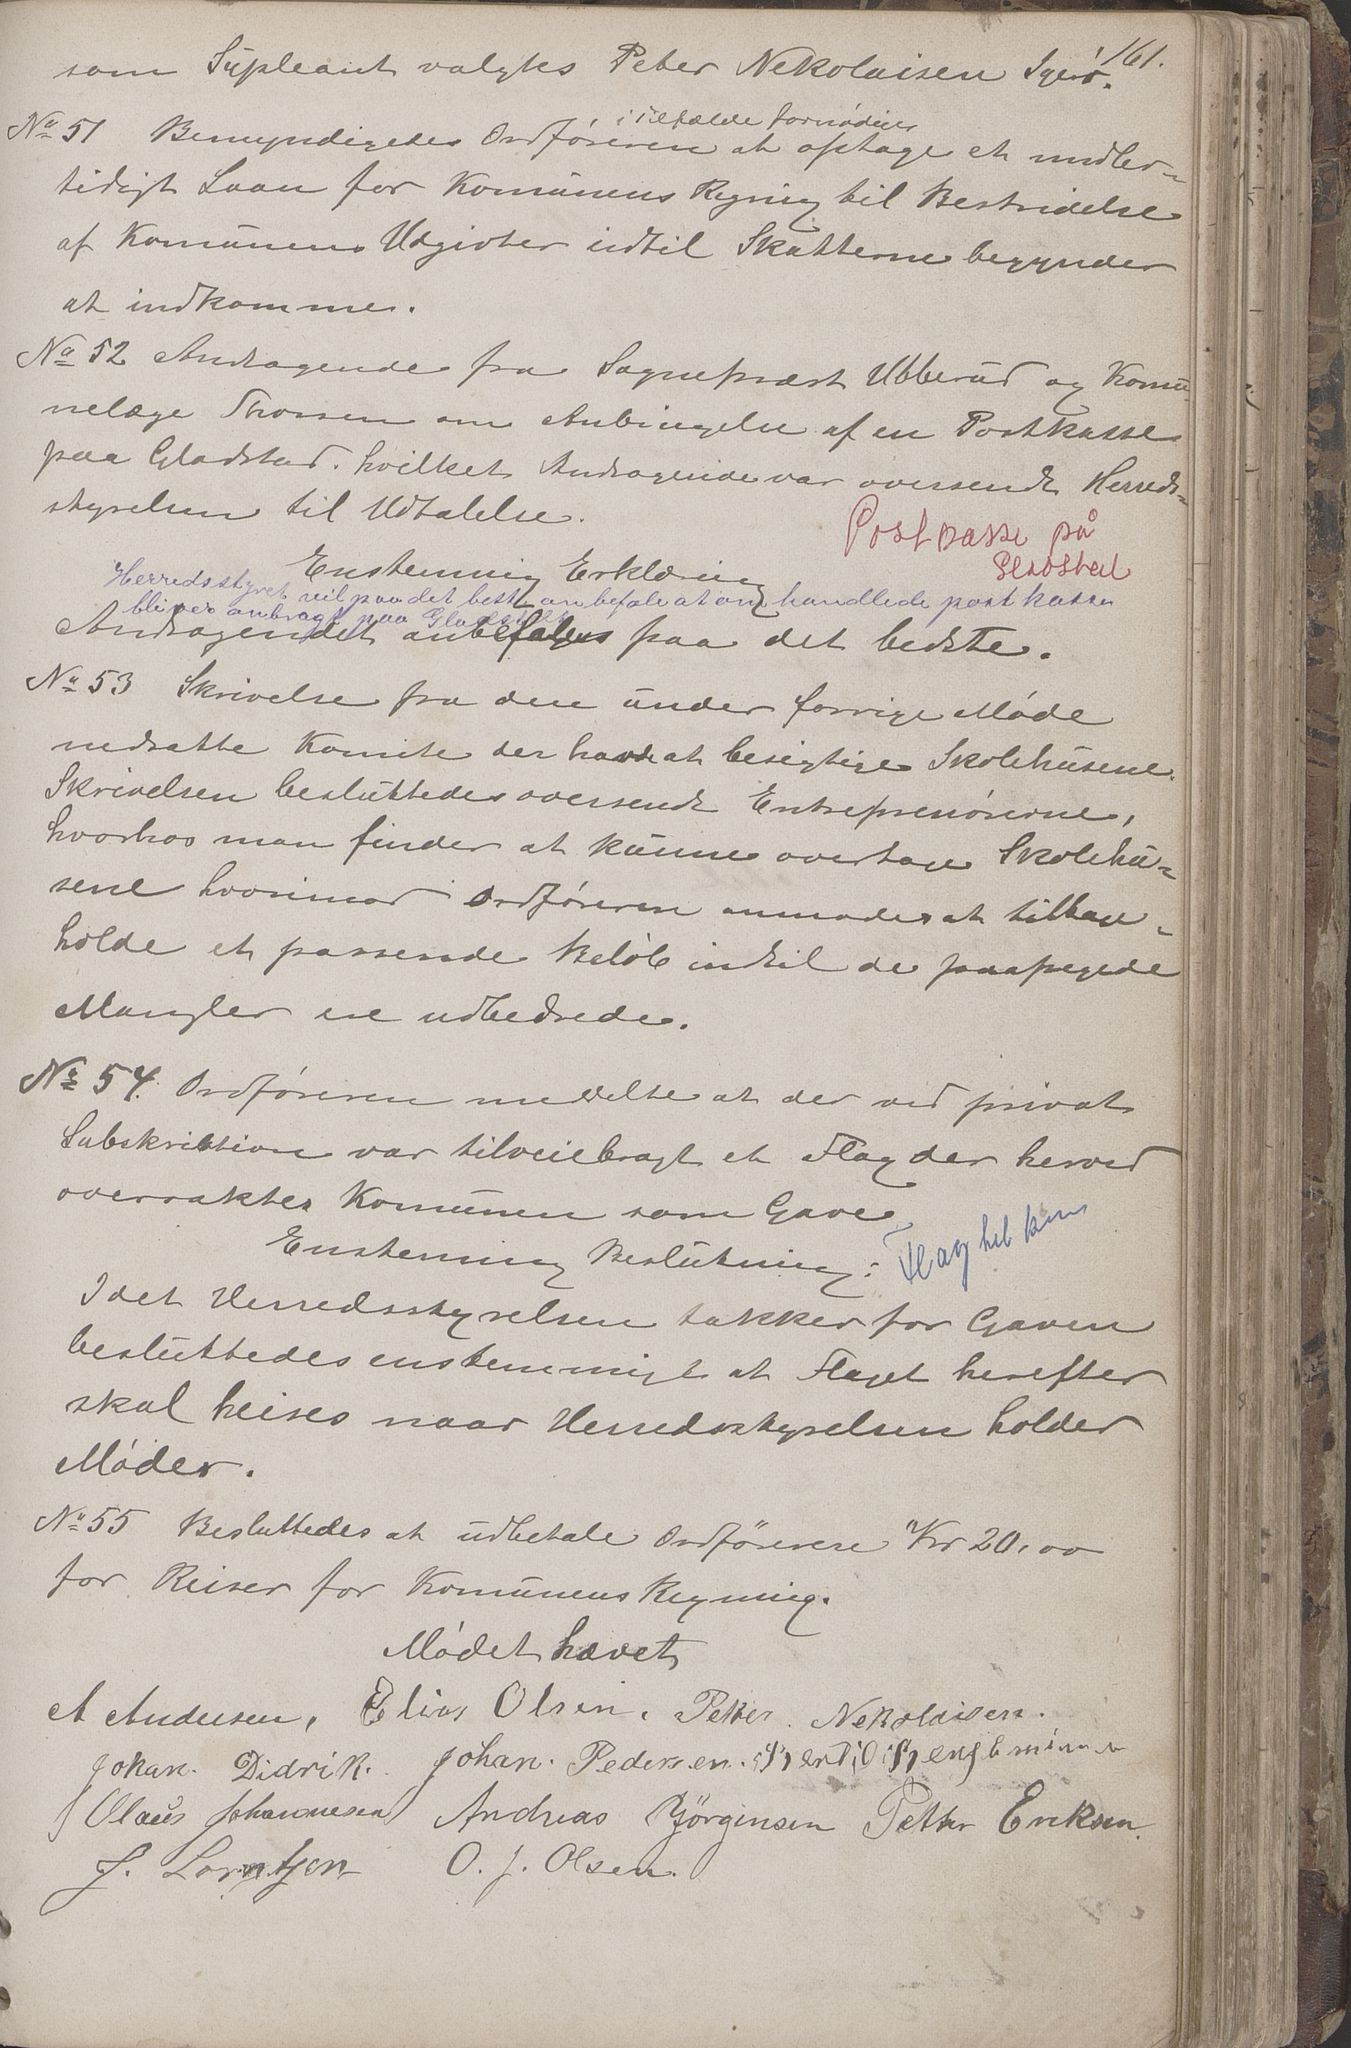 161.
som Supleant valgtes Peter Nekolaisen Igerø.
i tilfælde fornødiges
No 51 Bemyndigedes Ordføreren at optage et midler-
tidigt Laan for Komunens Regning til Bestridelse
af Komunens Udgivter indtil Skatterne begynder
at indkomme.
No 52 Andragende fra Sognepræst Ubberud og Komu-
nelæge Thorsen om Anbringelse af en Postkasse
paa Gladstad. hvilket Andragende var oversendt Herreds-
styrelsen til Udtalelse.
Postkasse på
Gladstad
Enstemmig Erklæring
Herredsstyret vil paa det beste anbefale at omhandlede postkasse
bliver anbragt paa Gladstad
Andragendet anbefales paa det bedste.
No 53 Skrivelse fra den under forrige Møde
nedsatte Komite der havde at besigtige Skolehusene.
Skrivelsen besluttedes oversendt Entreprenørerne,
hvorhos man finder at kunne overtage Skolehu-
sene hvorimod Ordføreren anmodes at tilbage-
holde et passende Beløb indtil de paapegede
Mangler ere udbedrede.
No 54. Ordføreren meddelte at der ved privat
Subskribtion var tilveiebragt et Flag der herved
overraktes Komunen som Gave
Enstemmig Beslutning:
Flag til kom
Idet Herredsstyrelsen takker for Gaven
besluttedes enstemmigt at Flaget herefter
skal heises naar Herredsstyrelsen holder
Møder.
No 55 Besluttedes at udbetale Ordføreren Kr 20,00
for Reiser for Komunens Regning.
Mødet hævet
A Andersen, Elias Olsen. Petter. Nekolaisen.
Johan. Didrik. Johan. Pedersen.
Olaus Johannesen Andreas Jörginsen Petter Eriksen.
J. Lorntsen O. J. Olsen.